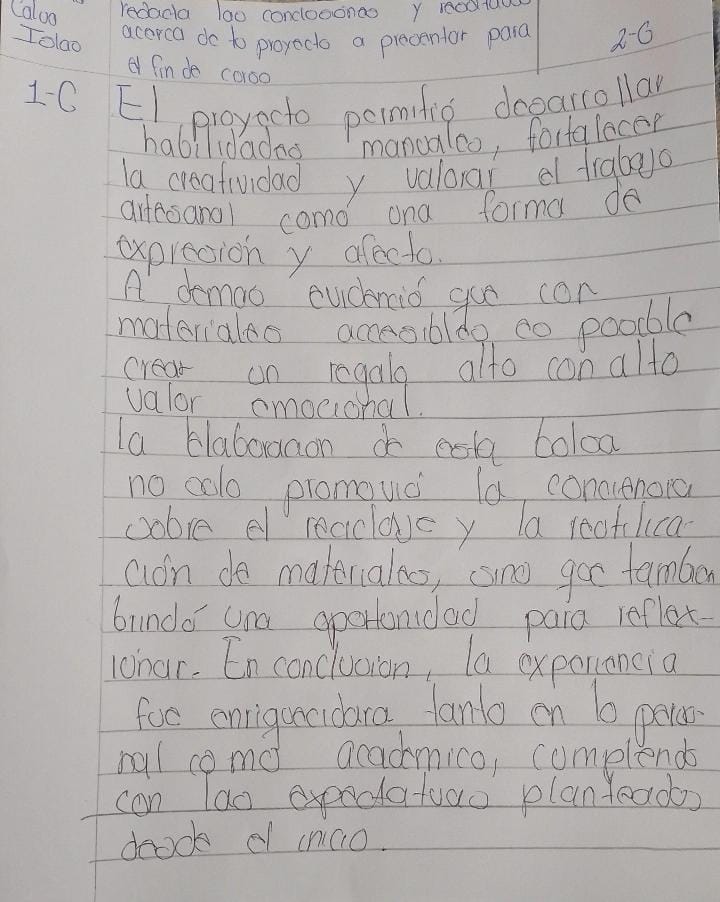 redacta las conclusiones y resultados
acerca de tu proyecto a presentar para
el fin de curso
Islas
2-G
1-C
El proyecto permitió desarrollar
habilidades manuales, fortalecer
la creatividad y valorar el trabajo
artesanal como una forma de
expresión y afecto.
A demas evidenció que con
materiales accesibles es posible
crear un regalo alto con alto
valor emocional.
la Elaboracion de esta bolsa
no solo promovió la conciencia
sobre el reciclaje y la reutiliza-
ción de materiales, sino que tambien
brindó una oportunidad para reflex-
ionar. En conclusion, la experiencia
fue enriquecidora tanto en lo perso-
nal como academico, compliendo
con las expectativas planteados
desde el inicio.